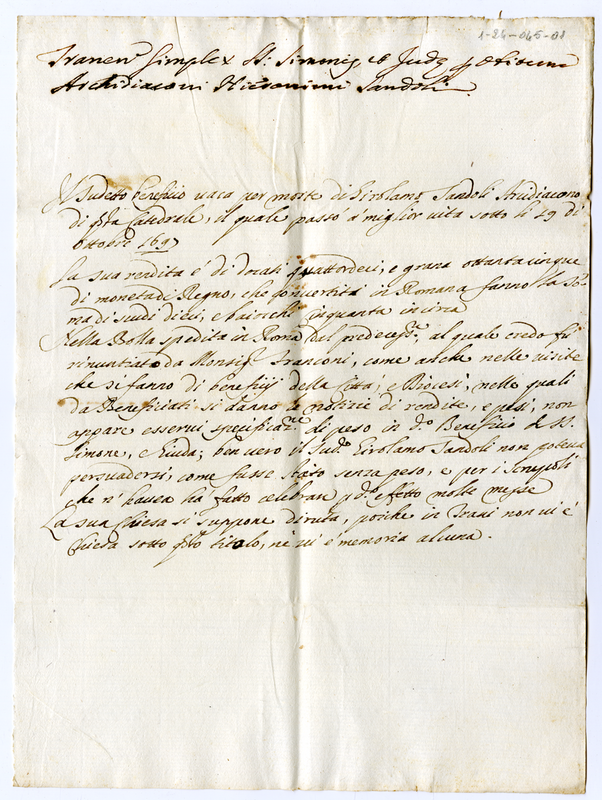 1-24-045-01
Tranen: Simplex SS: Simonis et Judę p obitum
Archidiaconi Hieronimi Sandoli.
Il Sudetto beneficio vaca per morte di Girolamo Sandoli Arcidiacono
di q̃sta Cattedrale, il quale passò à miglior vita sotto li 29 di
Ottobre 1697
La sua rendita é di docati quattordeci, e grana ottantacinque
di moneta di Regno, che convertita in Romana fanno la So-
ma di scudi dieci, e baiocchi Cinquanta in circa
Nella Bolla spedita in Roma dal predecess.re al quale credo fù
rinuntiato da Monsig.r Franconi, come anche nelle visite
che si fanno di beneficij della Città, e Diocesi, nelle quali
da Beneficiati si danno le notizie di rendite, e pesi, non
appare esservi specificaz.ne di peso in d.o Beneficio de SS.
Simone, e Giuda; ben vero il Sud.o Girolamo Sandoli non poteva
persuadersi, come fusse stato senza peso, e per i Scrupoli
che n' havea ha fatto celebrare p d.o effetto molte messe
La sua Chiesa si suppone diruta, poiche in Trani non vi é
Chiesa sotto q̃sto titolo, né vi é memoria alcuna.